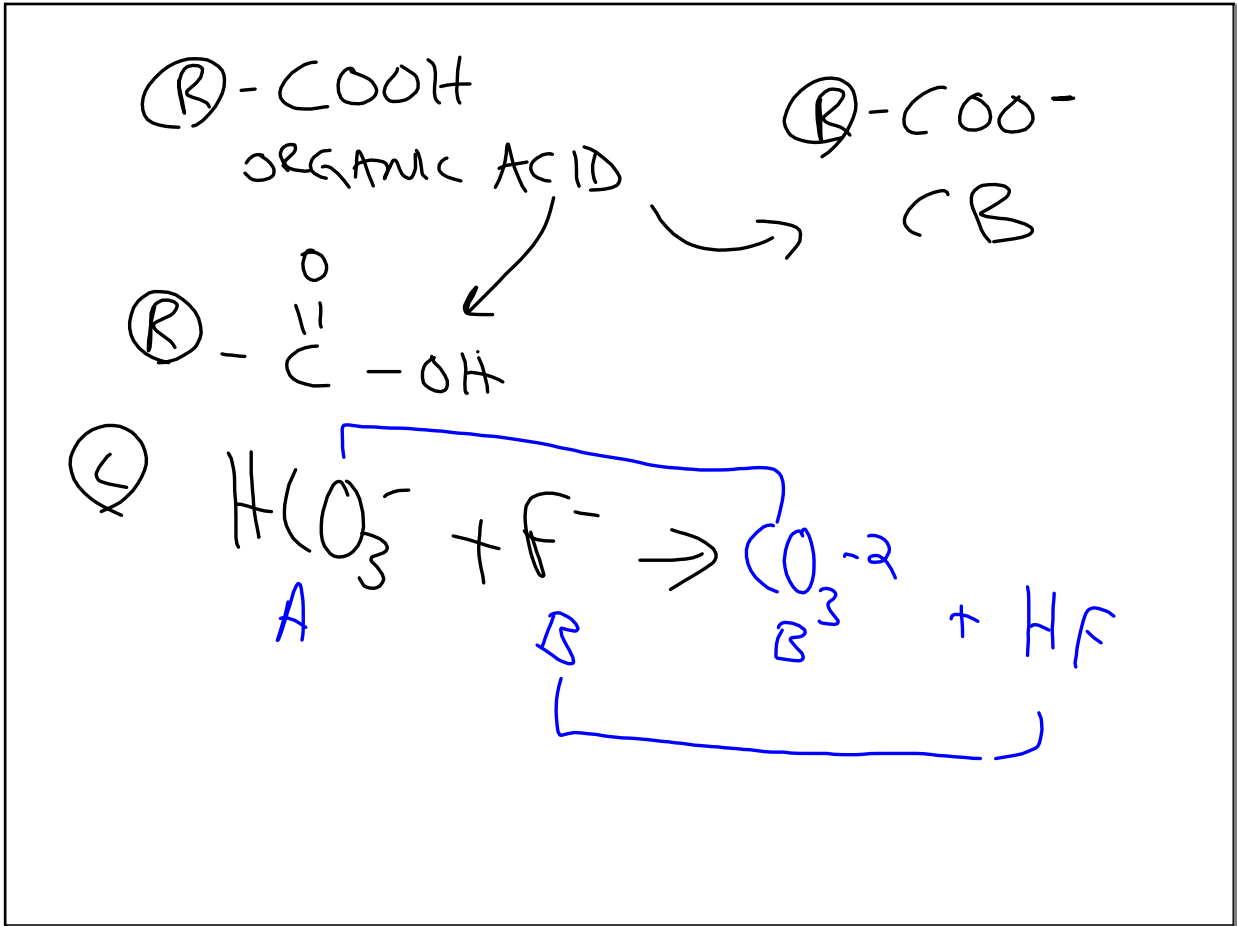 R - COOH
R - COO⁻
ORGANIC ACID
CB
O
||
R - C - OH
C
HCO₃⁻ + F⁻ → CO₃⁻² + HF
A B B